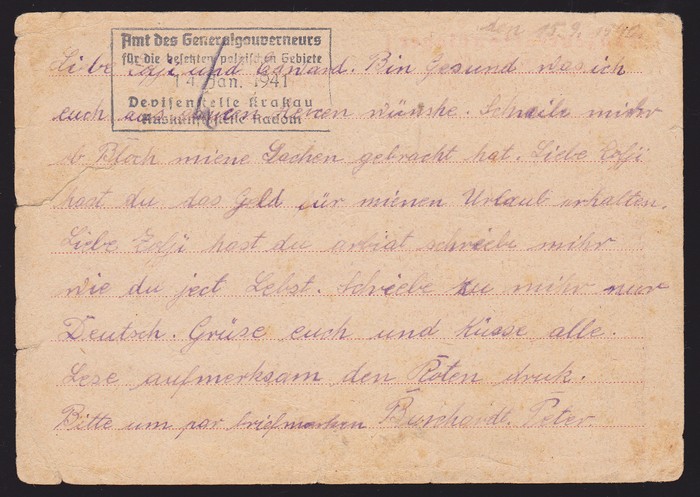 den 15.9. 1940.
Amt des Generalgouverneurs
für die besetzten polnischen Gebiete
14. Jan. 1941
Devisenstelle Krakau
Auskunftstelle Radom
Liebe Zofji und Edward. Bin Gesund was ich
euch auch von wünshe. Schreibe mihr
ob Bloch miene Sachen gebracht hat. Liebe Zofji
hast du das Geld für mienen Urlaub erhalten.
Liebe Zofji hast du arbiat schriebe mihr
wie du ject Lebst. Schriebe zu mihr nur
Deutsch. Grüse euch und Küsse alle.
Lese aufmerksam den Roten druk.
Bitte um par briefmarken Burchardt. Peter.